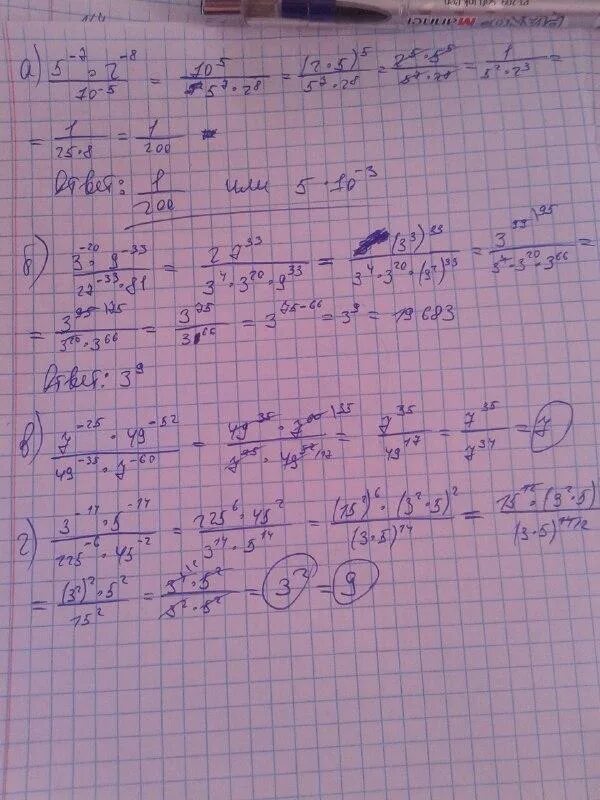 а) (5^-7 · 2^-8)/(10^-5) = 10^5/(5^7 · 2^8) = (2·5)^5/(5^7 · 2^8) = (2^5 · 5^5)/(5^7 · 2^8) = 1/(5^2 · 2^3) =
= 1/(25·8) = 1/200
Ответ: 1/200 или 5 · 10^-3
б) (3^-20 · 9^-33)/(27^-33 · 81) = 27^33/(3^4 · 3^20 · 9^33) = (3^3)^33/(3^4 · 3^20 · (3^2)^33) = 3^99/(3^4 · 3^20 · 3^66) =
= 3^75/3^66 = 3^(75-66) = 3^9 = 19683
Ответ: 3^9
в) (7^-25 · 49^-52)/(49^-35 · 7^-60) = (49^35 · 7^60)/(7^25 · 49^52) = 7^35/49^17 = 7^35/7^34 = 7
г) (3^-14 · 5^-14)/(225^-6 · 45^-2) = (225^6 · 45^2)/(3^14 · 5^14) = ((15^2)^6 · (3^2 · 5)^2)/(3·5)^14 =
= ((3^2)^2 · 5^2)/15^2 = 3^2 = 9